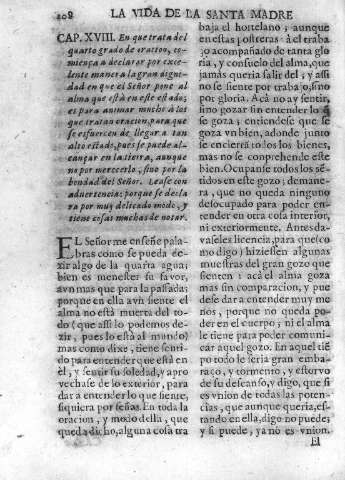 208 LA VIDA DE LA SANTA MADRE
CAP. XVIII. En que trata del
quarto grado de oracion, co-
miença a declarar por exce-
lente manera la gran digni-
dad en que el Señor pone al
alma que està en este estado;
es para animar mucho a los
que tratan oracion, para que
se esfuercen de llegar a tan
alto estado, pues se puede al-
cançar en la tierra, aunque
no por merecerlo, sino por la
bondad del Señor. Lease con
advertencia: porque se decla
ra por muy delicado modo, y
tiene cosas muchas de notar.
EL Señor me enseñe pala-
bras como se pueda de-
zir algo de la quarta agua;
bien es menester su favor,
avn mas que para la passada;
porque en ella avn siente el
alma no està muerta del to-
do (que assi lo podemos de-
zir, pues lo està al mundo)
mas como dixe, tiene senti-
do para entender que està en
èl, y sentir su soledad, y apro
vechase de lo exterior, para
dar a entender lo que siente,
siquiera por señas. En toda la
oracion, y modo della, que
queda dicho, alguna cosa tra
baja el hortelano; aunque
en estas postreras và el traba
jo acompañado de tanta glo
ria, y consuelo del alma, que
jamàs querria salir del; y assi
no se siente por trabajo, sino
por gloria. Acà no ay sentir,
sino gozar sin entender lo q̃
se goza; entiendese que se
goza vn bien, adonde junto
se encierrã todos los bienes,
mas no se conprehende este
bien. Ocupanse todos los sẽ-
tidos en este gozo; de mane-
ra, que no queda ninguno
desocupado para poder en-
tender en otra cosa interior,
ni exteriormente. Antes da-
vaseles licencia, para que (co
mo digo) hiziessen algunas
muestras del gran gozo que
sienten: acà el alma goza
mas sin comparacion, y pue
dese dar a entender muy me
nos, porque no queda po-
der en el cuerpo; ni el alma
le tiene para poder comuni-
car aquel gozo. En aquel tiẽ
po todo le seria gran emba-
raço, y tormento, y estorvo
de su descanso, y digo, que si
es vnion de todas las poten-
cias, que aunque queria, es-
tando en ella, digo no puede;
y si puede, ya no es vnion.
El